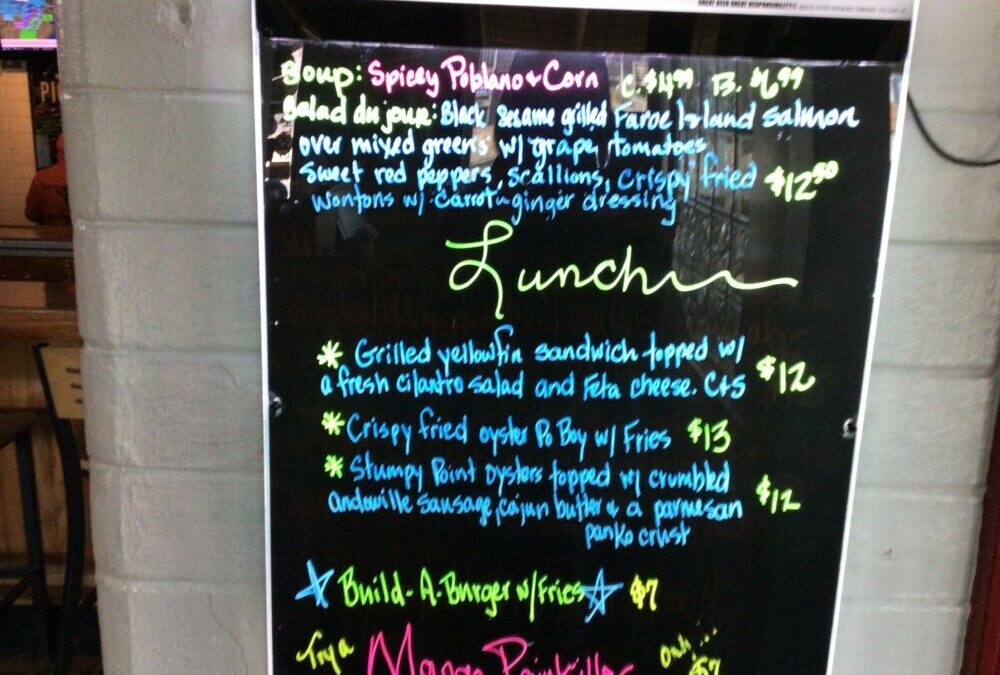 GREAT BEER GREAT RESPONSIBILITY
Soup: Spicey Poblano & Corn C. $4.99 B. $6.99
Salad du jour: Black Sesame grilled Faroe Island Salmon
over mixed greens w/ grape tomatoes
Sweet red peppers, Scallions, Crispy fried $12.50
wontons w/ carrot-ginger dressing
Lunch
* Grilled yellowfin sandwich topped w/
a fresh cilantro salad and Feta cheese. C+S $12
* Crispy fried oyster Po Boy w/ Fries $13
* Stumpy Point oysters topped w/ crumbled
andouille sausage, cajun butter & a parmesan $12
panko crust
Build-A-Burger w/ Fries $7
Try a Mango Painkiller Ooh... $7